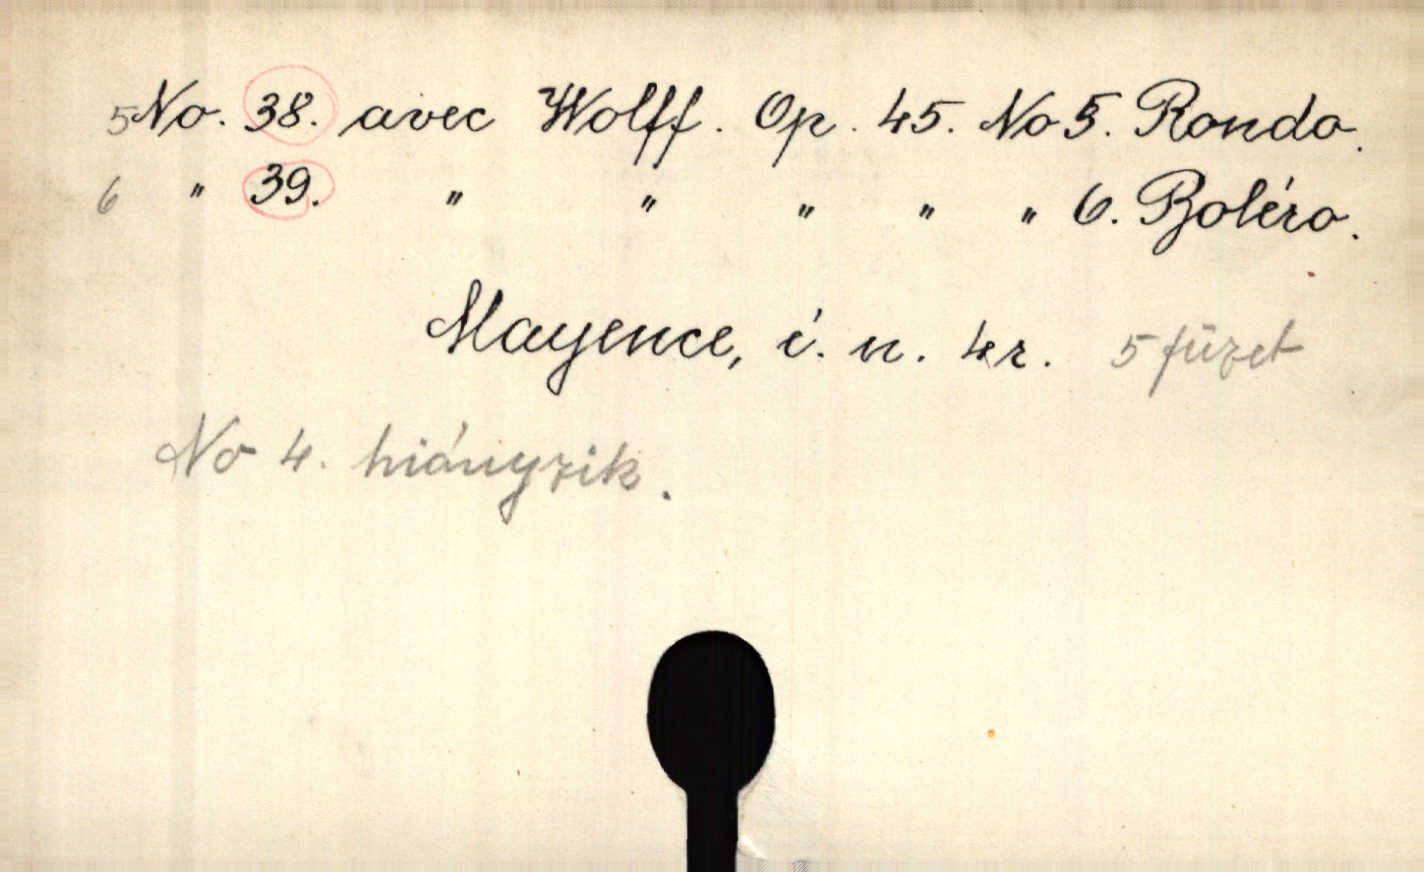 5 No. 38. avec Wolff. Op. 45. No 5. Rondo.
6 " 39. " " " " " 6. Boléro.
Mayence, é. n. 4r. 5 füzet
No 4. hiányzik.